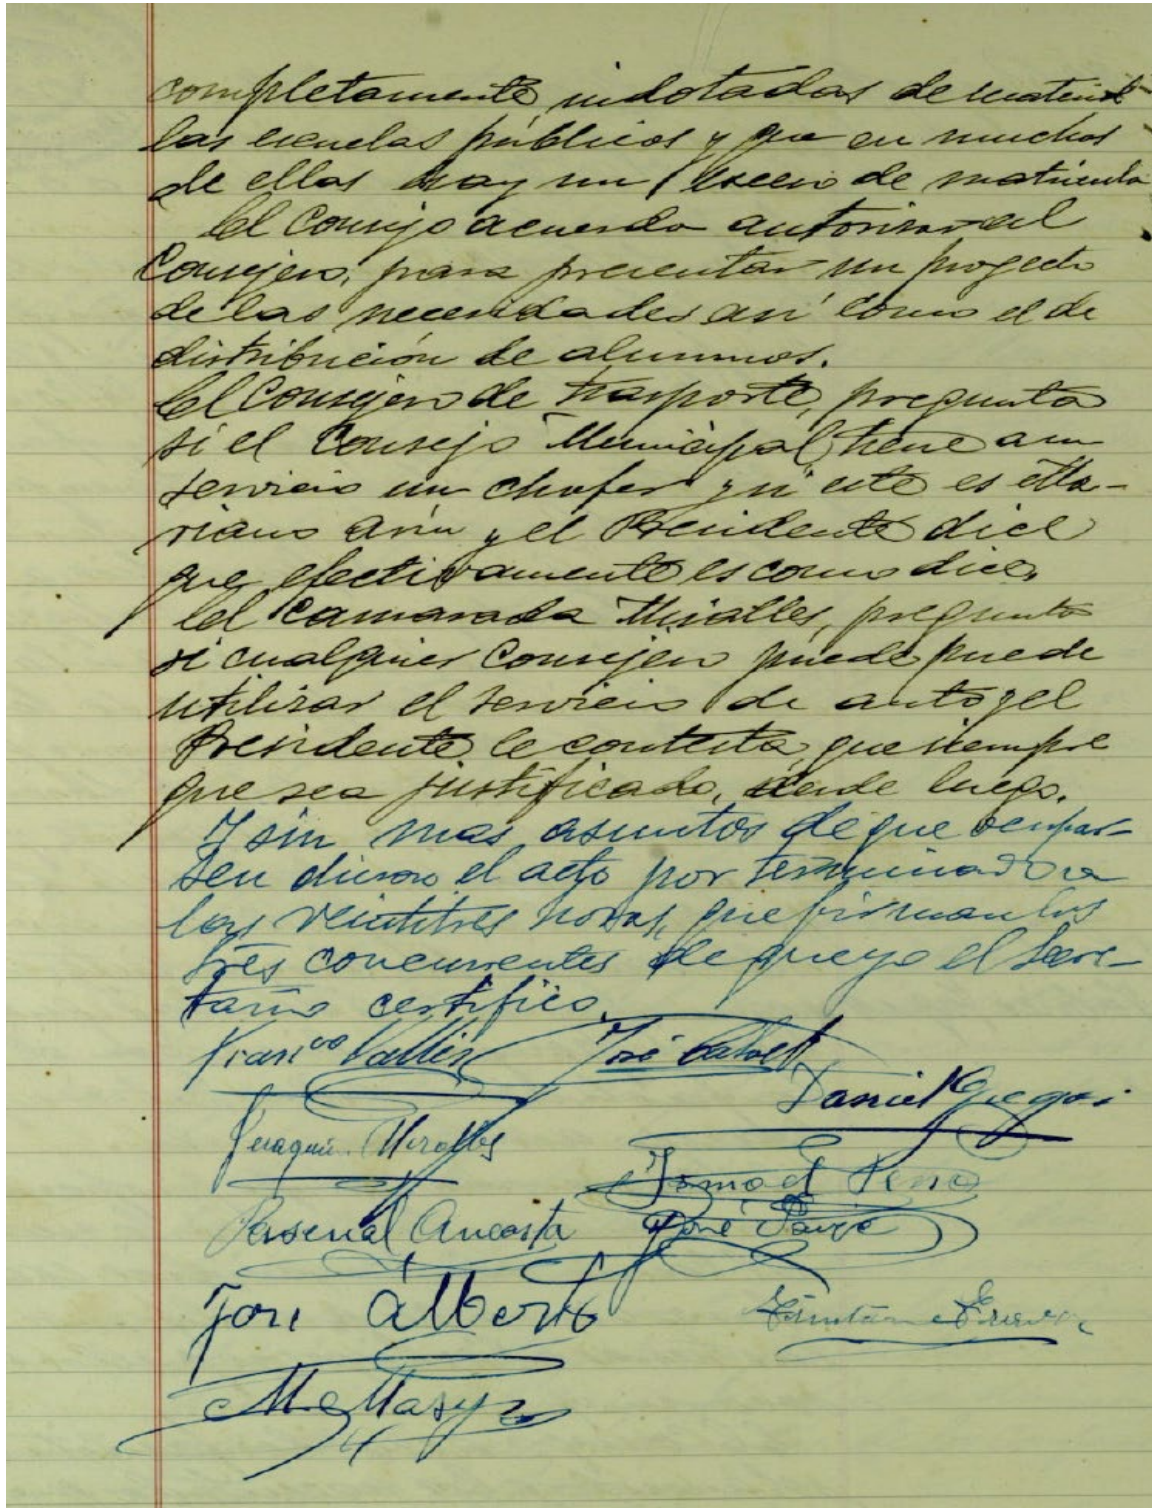 completamente indotadas de material
las escuelas públicas y que en muchas
de ellas hay un exceso de matricula
El Consejo acuerda autorizar al
Consejero, para presentar un proyecto
de las necesidades así como el de
distribución de alumnos.
El Consejero de trasporte, pregunta
si el Consejo Municipal tiene a su
servicio un chofer y si este es Ma-
riano y el Presidente dice
que efectivamente es como dice.
El camarada Miralles, pregunta
si cualquier Consejero puede puede
utilizar el servicio de auto y el
Presidente le contesta que siempre
que sea justificado, desde luego.
Y sin mas asuntos de que ocupar-
sen dieron el acto por terminado a
las veintitres horas, que firman los
tres concurrentes de que yo el Secre-
tario certifico.
Franco Vallés José
Daniel
Joaquin Miralles
Ismael Peña
Pascual José
José Alberto